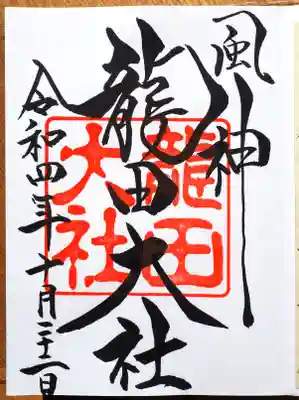 風神
龍田大社
龍田
大社
令和四年十月二十一日